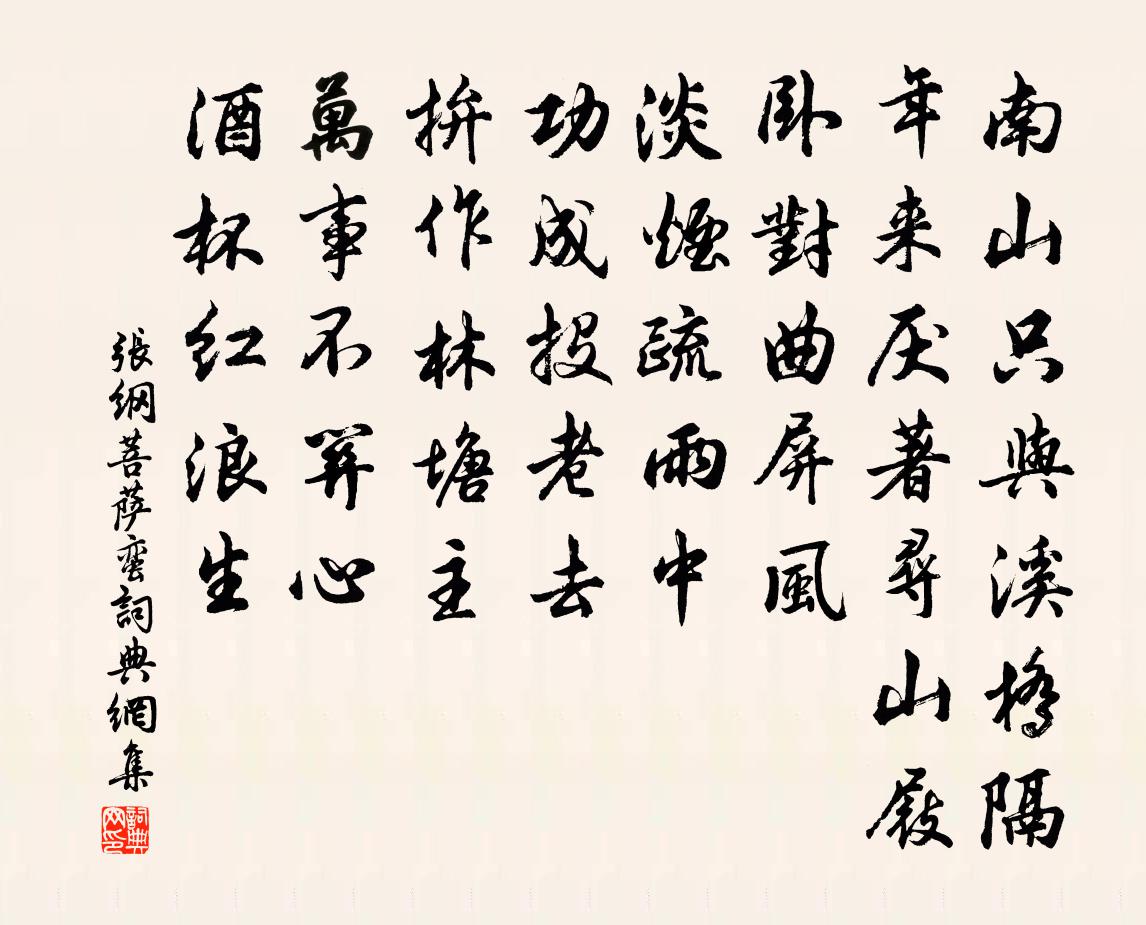 南山只與溪橋隔
年来厌著尋山屐
卧對曲屏風
淡煙疏雨中
功成投老去
拚作林塘主
萬事不關心
酒杯红浪生
張纲菩萨蛮詞典網集
詞典
网印